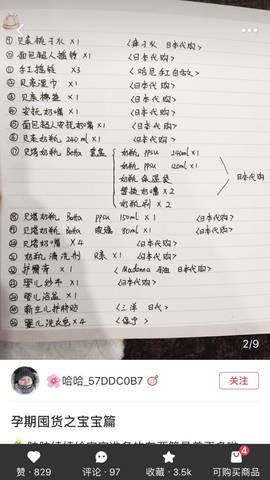 ⑨ 贝亲桃子水 ×1 <桃子水 日本代购>
⑩ 面包超人摇铃 ×1 <日本代购>
⑪ 手工摇铃 ×3
⑫ 贝亲湿巾 ×1 <日本代购>
⑬ ×1 <日本代购>
⑭ 安抚奶嘴 ×1 <日本代购>
⑮ 面包超人安抚奶嘴 ×1 <日本代购>
⑯ 贝亲奶瓶 240ml ×1 <日本代购>
⑰ 贝塔奶瓶 Betta 套盒
奶瓶 ppsu 240ml ×1
奶瓶 ppsu 120ml ×1
奶瓶保温袋
替换奶嘴 ×2
奶瓶刷 ×2
日本代购
⑱ 贝塔奶瓶 Betta ppsu 150ml ×1 <日本代购>
⑲ 贝塔奶瓶 Betta 玻璃 80ml ×1 <日本代购>
⑳ 贝塔奶嘴 ×4 <日本代购>
奶瓶清洗剂 贝亲 ×1 <日本代购>
护臀膏 ×1 <Madonna 日本代购>
婴儿纱布 ×1 <日本代购>
婴儿浴盆 ×1
新生儿护脐贴 <三洋 日代>
婴儿洗衣皂 ×4 <保宁>
2/9
哈哈_57DDC0B7
关注
孕期囤货之宝宝篇
赞 · 829
评论 · 97
收藏 · 3.5k
4
可购买商品